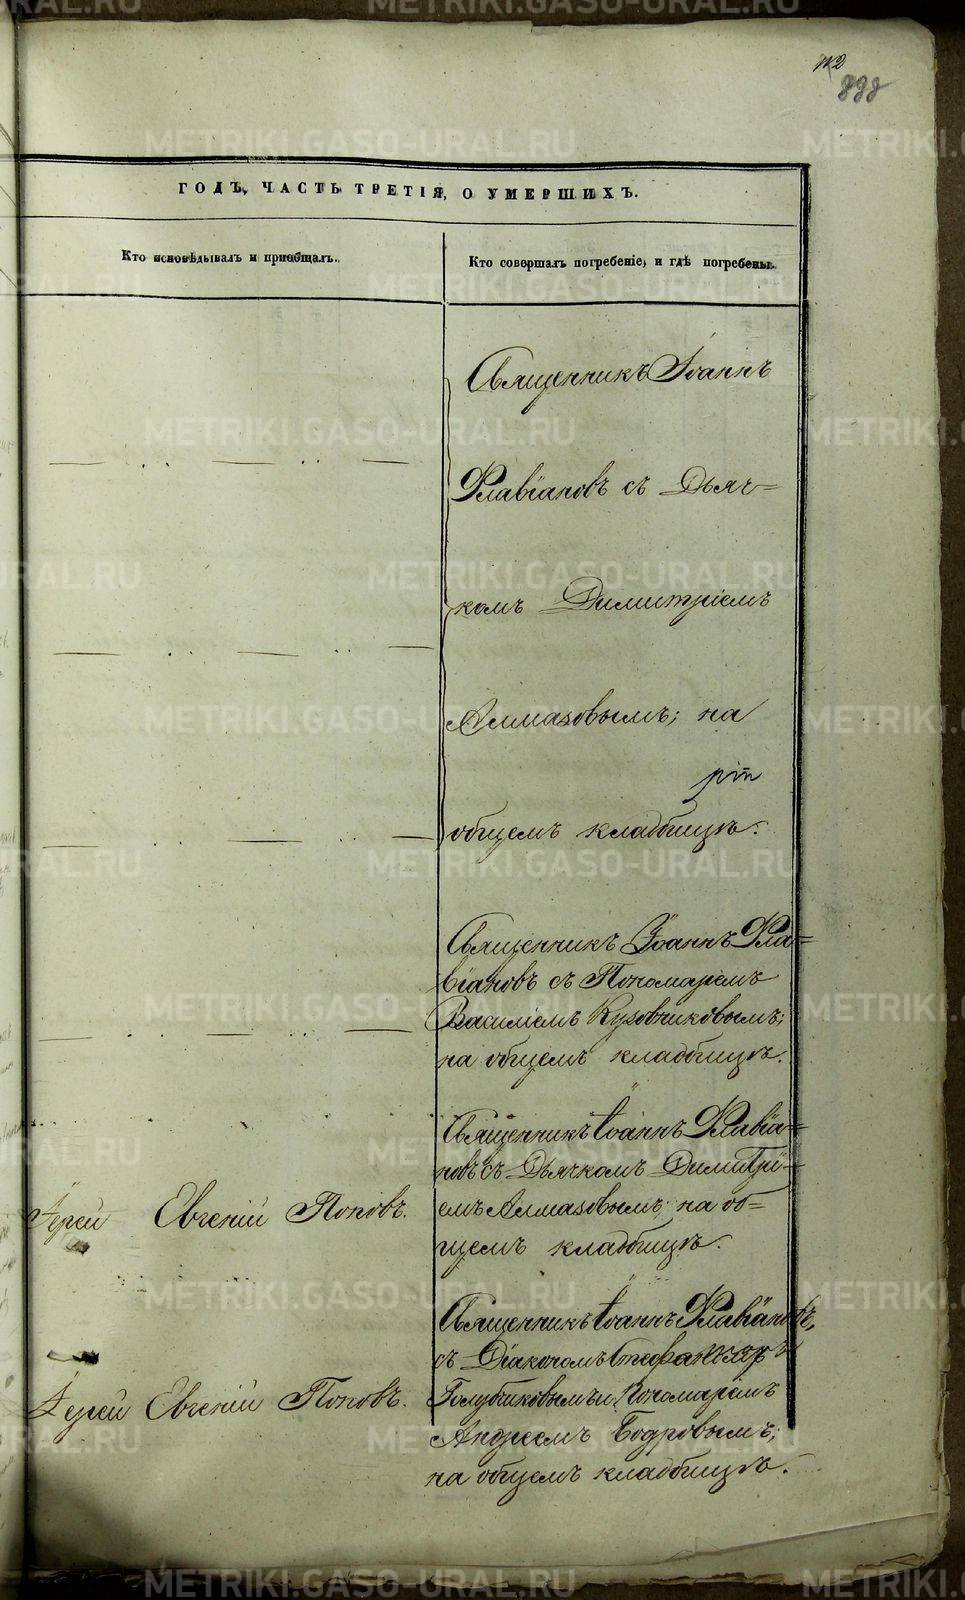 ГОДЪ, ЧАСТЬ ТРЕТІЯ, О УМЕРШИХЪ.
Кто исповѣдывалъ и пріобщалъ.
Кто совершалъ погребеніе, и гдѣ погребены.
Священникъ Іоаннъ
Флавіановъ съ Дьяч=
комъ Димитріемъ
Алмазовымъ; на
общемъ кладбищѣ.
Священникъ Іоаннъ Фла=
віановъ съ Пономаремъ
Василіемъ Кузовниковымъ;
на общемъ кладбищѣ.
Іерей Евгеній Поповъ.
Священникъ Іоаннъ Флавіа=
новъ съ Дьячкомъ Димитрі=
емъ Алмазовымъ; на об=
щемъ кладбищѣ.
Іерей Евгеній Поповъ.
Священникъ Іоаннъ Флавіановъ,
съ Діакономъ
Голубчиковымъ и Пономаремъ
Андреемъ Бодровымъ;
на общемъ кладбищѣ.
METRIKI.GASO-URAL.RU